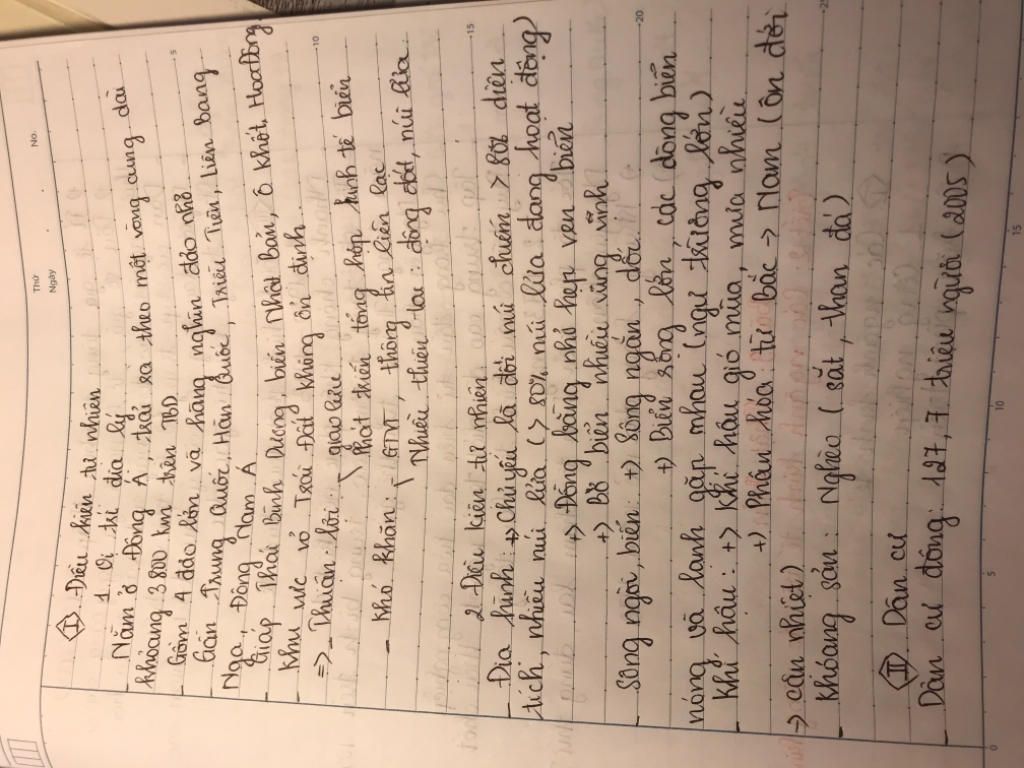 Thứ
Ngày
No.
I Điều kiện tự nhiên
1. Vị trí địa lý
- Nằm ở Đông Á, trải ra theo một vòng cung dài
khoảng 3.800 km trên TBD
- Gồm 4 đảo lớn và hàng nghìn đảo nhỏ
- Gần Trung Quốc, Hàn Quốc, Triều Tiên, Liên Bang
Nga, Đông Nam Á
- Giáp Thái Bình Dương, biển Nhật Bản, Ô Khốt, Hoa Đông
- Khu vực vỏ Trái Đất không ổn định
=> - Thuận lợi: giao lưu
Phát triển tổng hợp kinh tế biển
- Khó khăn: - GTVT, thông tin liên lạc
Nhiều thiên tai: động đất, núi lửa
2. Điều kiện tự nhiên
- Địa hình: +) chủ yếu là đồi núi chiếm > 80% diện
tích, nhiều núi lửa (> 80% núi lửa đang hoạt động)
+) Đồng bằng nhỏ hẹp ven biển
+) Bờ biển nhiều vũng vịnh
- Sông ngòi, biển: +) Sông ngắn, dốc
+) Biển rộng lớn, các dòng biển
nóng và lạnh gặp nhau (ngư trường lớn)
- Khí hậu: +) Khí hậu gió mùa, mưa nhiều
+) Phân hóa từ Bắc -> Nam (ôn đới
-> cận nhiệt)
- Khoáng sản: Nghèo (sắt, than đá)
II Dân cư
- Dân cư đông: 127,7 triệu người (2005)
5
10
15
20
25
0
5
10
15